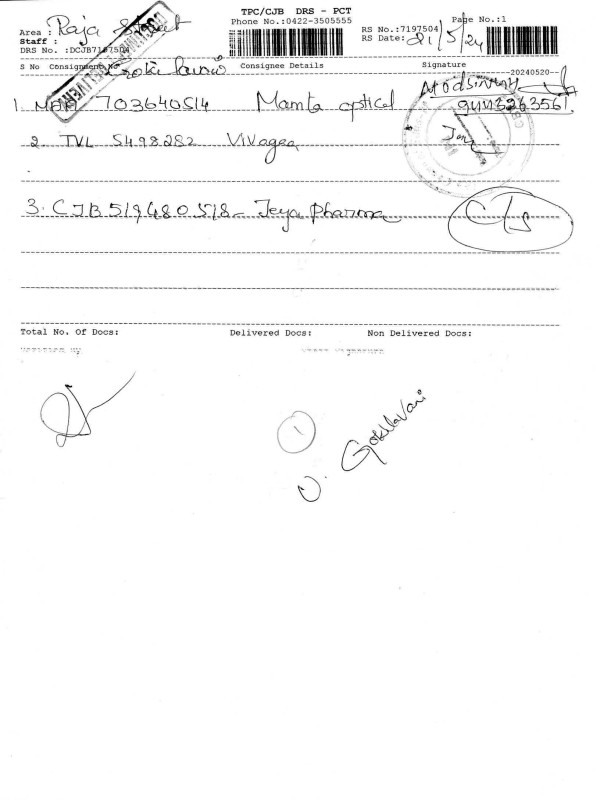 TPC/CJB DRS - PCT
Phone No.:0422-3505555
Page No.:1
Area : Raja Street
RS No.:7197504
Staff :
RS Date: 21/5/24
DRS No. :DCJB7197504
S No Consignment No Consignee Details Signature
20240520
1. 703640514 Mamta optical
2. TVL 5498282 Vivagaa
3. CJB 519480518 - Jeya Pharma C/s
Total No. Of Docs: Delivered Docs: Non Delivered Docs:
1
V. Gokilavani